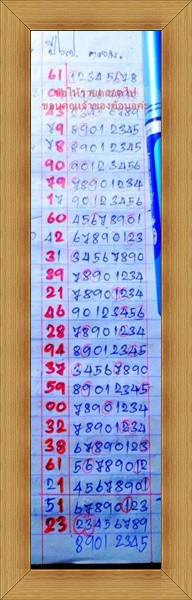 61 12345678
ขอให้รวยตลอดไป
ขอบคุณเจ้าของข้อมูลค่ะ
79 89012345
78 89012345
90 90123456
79 78901234
17 90123456
60 45678901
42 67890123
31 34567890
39 78901234
21 78901234
46 90123456
28 78901234
94 89012345
37 34567890
59 89012345
00 78901234
32 78901234
38 67890123
61 56789012
21 45678901
51 67890123
23 23456789
89012345